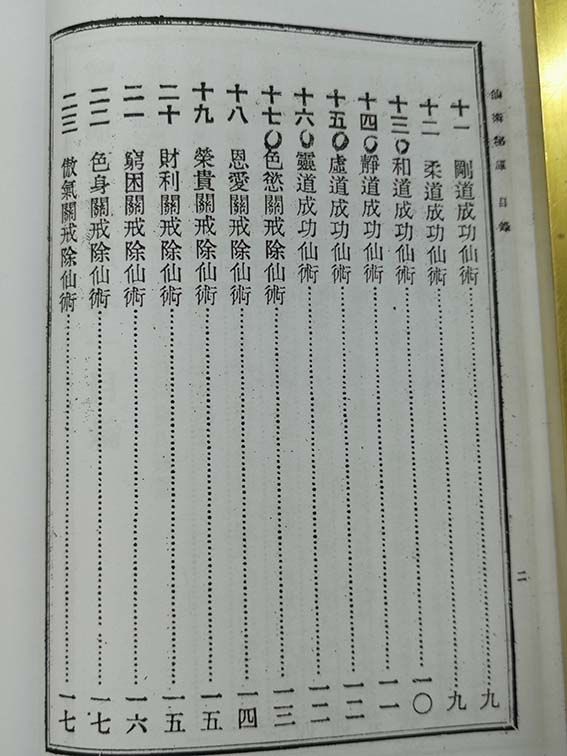 仙術秘庫 目錄
十一 剛道成功仙術……九
十二 柔道成功仙術……九
十三 和道成功仙術……一〇
十四 靜道成功仙術……一一
十五 虛道成功仙術……一二
十六 靈道成功仙術……一二
十七 色慾關戒除仙術……一三
十八 恩愛關戒除仙術……一四
十九 榮貴關戒除仙術……一五
二十 財利關戒除仙術……一五
二一 窮困關戒除仙術……一六
二二 色身關戒除仙術……一七
二三 傲氣關戒除仙術……一七
二